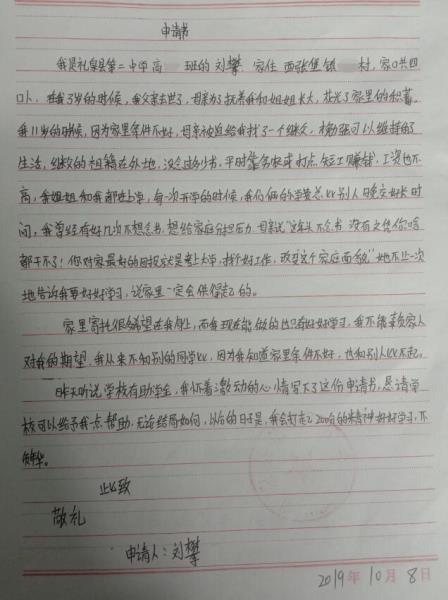 申请书
我是礼泉县第二中学高 班的刘攀 家住 西张堡镇 村，家口共四
口人，在我3岁的时候，我父亲去世了，母亲为了抚养我和姐姐长大，花光了家里的积蓄。
我11岁的时候，因为家里条件不好，母亲被迫给我找了一个继父，勉强可以维持的
生活，继父的祖籍在外地，没念过多少书，平时靠务农或打点短工赚钱，工资也不
高，我姐姐和我都在上学，每一次开学的时候，我们俩的学费总比别人晚交好长时
间，我曾经有好几次不想念书，想给家庭分担压力，母亲说"这年头不念书 没有文凭你啥
都干不了！你对家最好的回报就是考上大学，找个好工作，改变这个家庭面貌"她不止一次
地告诉我要好好学习，说家里一定会供得起的。
家里寄托很多希望在我身上，而我现在能做的也只有好好学习，我不能辜负家人
对我的期望，我从来不和别的同学比，因为我知道家里条件不好，也和别人比不起。
昨天听说学校有助学金，我怀着激动的心情写下了这份申请书，恳请学
校可以给予我一点帮助，无论结局如何，以后的日子里，我会打起200分的精神好好学习，不
负韶华。
此致
敬礼
申请人：刘攀
2019年10月8日